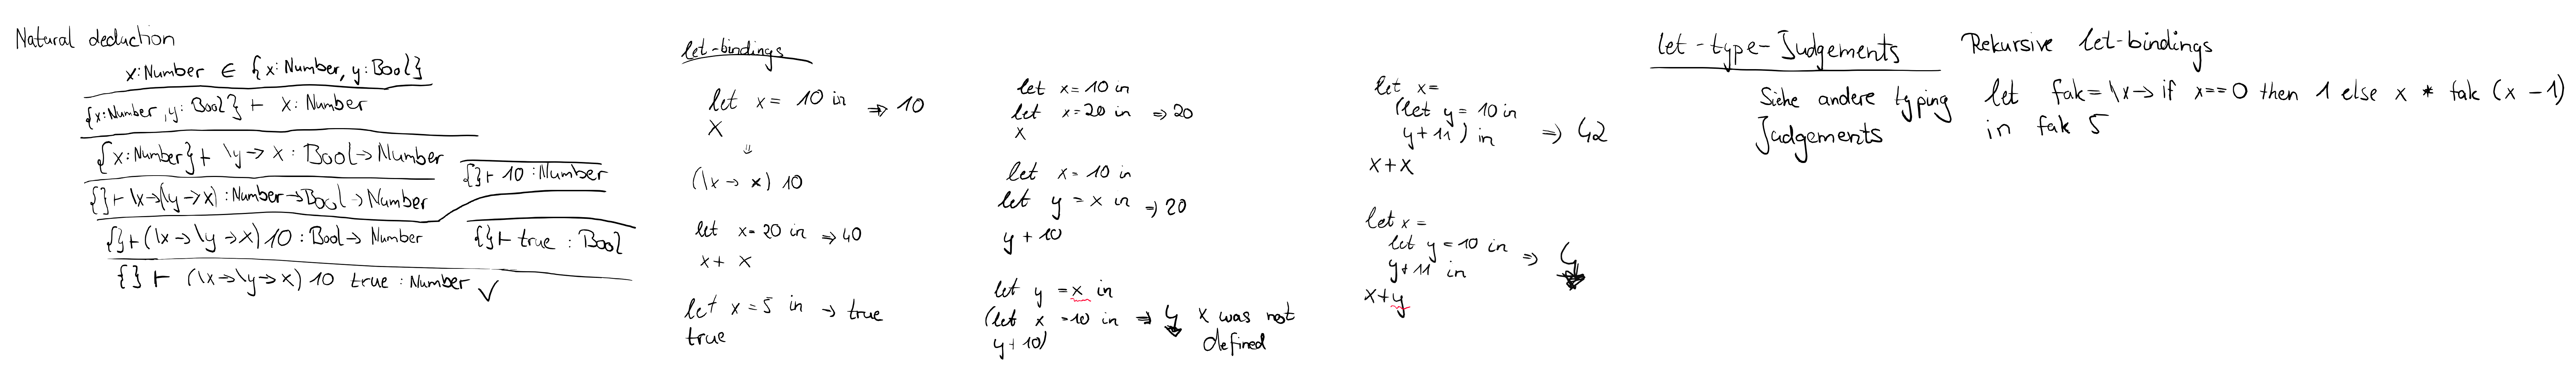 Natural deduction
x:Number ∈ {x:Number, y:Bool}
{x:Number, y:Bool} ⊢ x:Number
{x:Number} ⊢ \y→ x : Bool→Number
{} ⊢ 10 : Number
{} ⊢ \x→(\y→x) : Number→Bool→Number
{} ⊢ (\x→\y→x) 10 : Bool→ Number
{} ⊢ true : Bool
{} ⊢ (\x→\y→x) 10 true : Number ✓
let-bindings
let x = 10 in ⇒ 10
x
⇓
(\x → x) 10
let x = 20 in ⇒ 40
x + x
let x = 5 in → true
true
let x = 10 in
let x = 20 in ⇒ 20
x
let x = 10 in
let y = x in ⇒ 20
y + 10
let y = x in
(let x = 10 in ⇒ ↯ x was not
y + 10) defined
let x =
(let y = 10 in
y + 11) in ⇒ 42
x + x
let x =
let y = 10 in ⇒ ↯
y + 11 in
x + y
let-type-Judgements
Siehe andere typing
Judgements
Rekursive let-bindings
let fak = \x → if x == 0 then 1 else x * fak (x - 1)
in fak 5